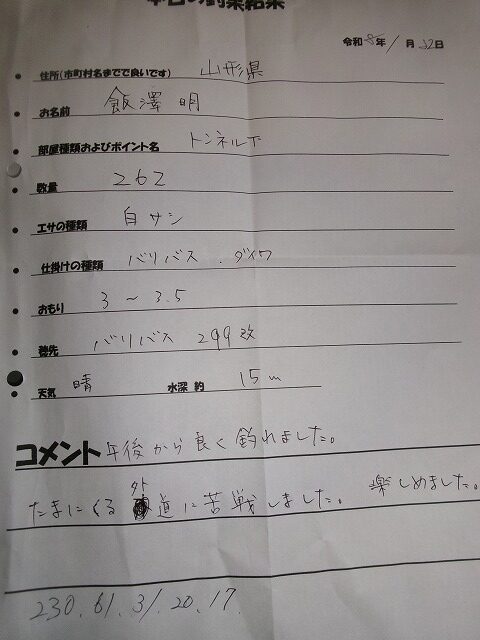 本日の釣果結果
令和5年 1月22日
住所(市町村名までで良いです) 山形県
お名前 飯澤 明
部屋種類およびポイント名 トンネル下
数量 262
エサの種類 白サシ
仕掛けの種類 バリバス . ダイワ
おもり 3 ~ 3.5
穂先 バリバス 299改
天気 晴 水深 約 15m
コメント 午後から良く釣れました。
たまにくる 外道に苦戦しました。 楽しめました。
230. 61. 31. 20. 17.